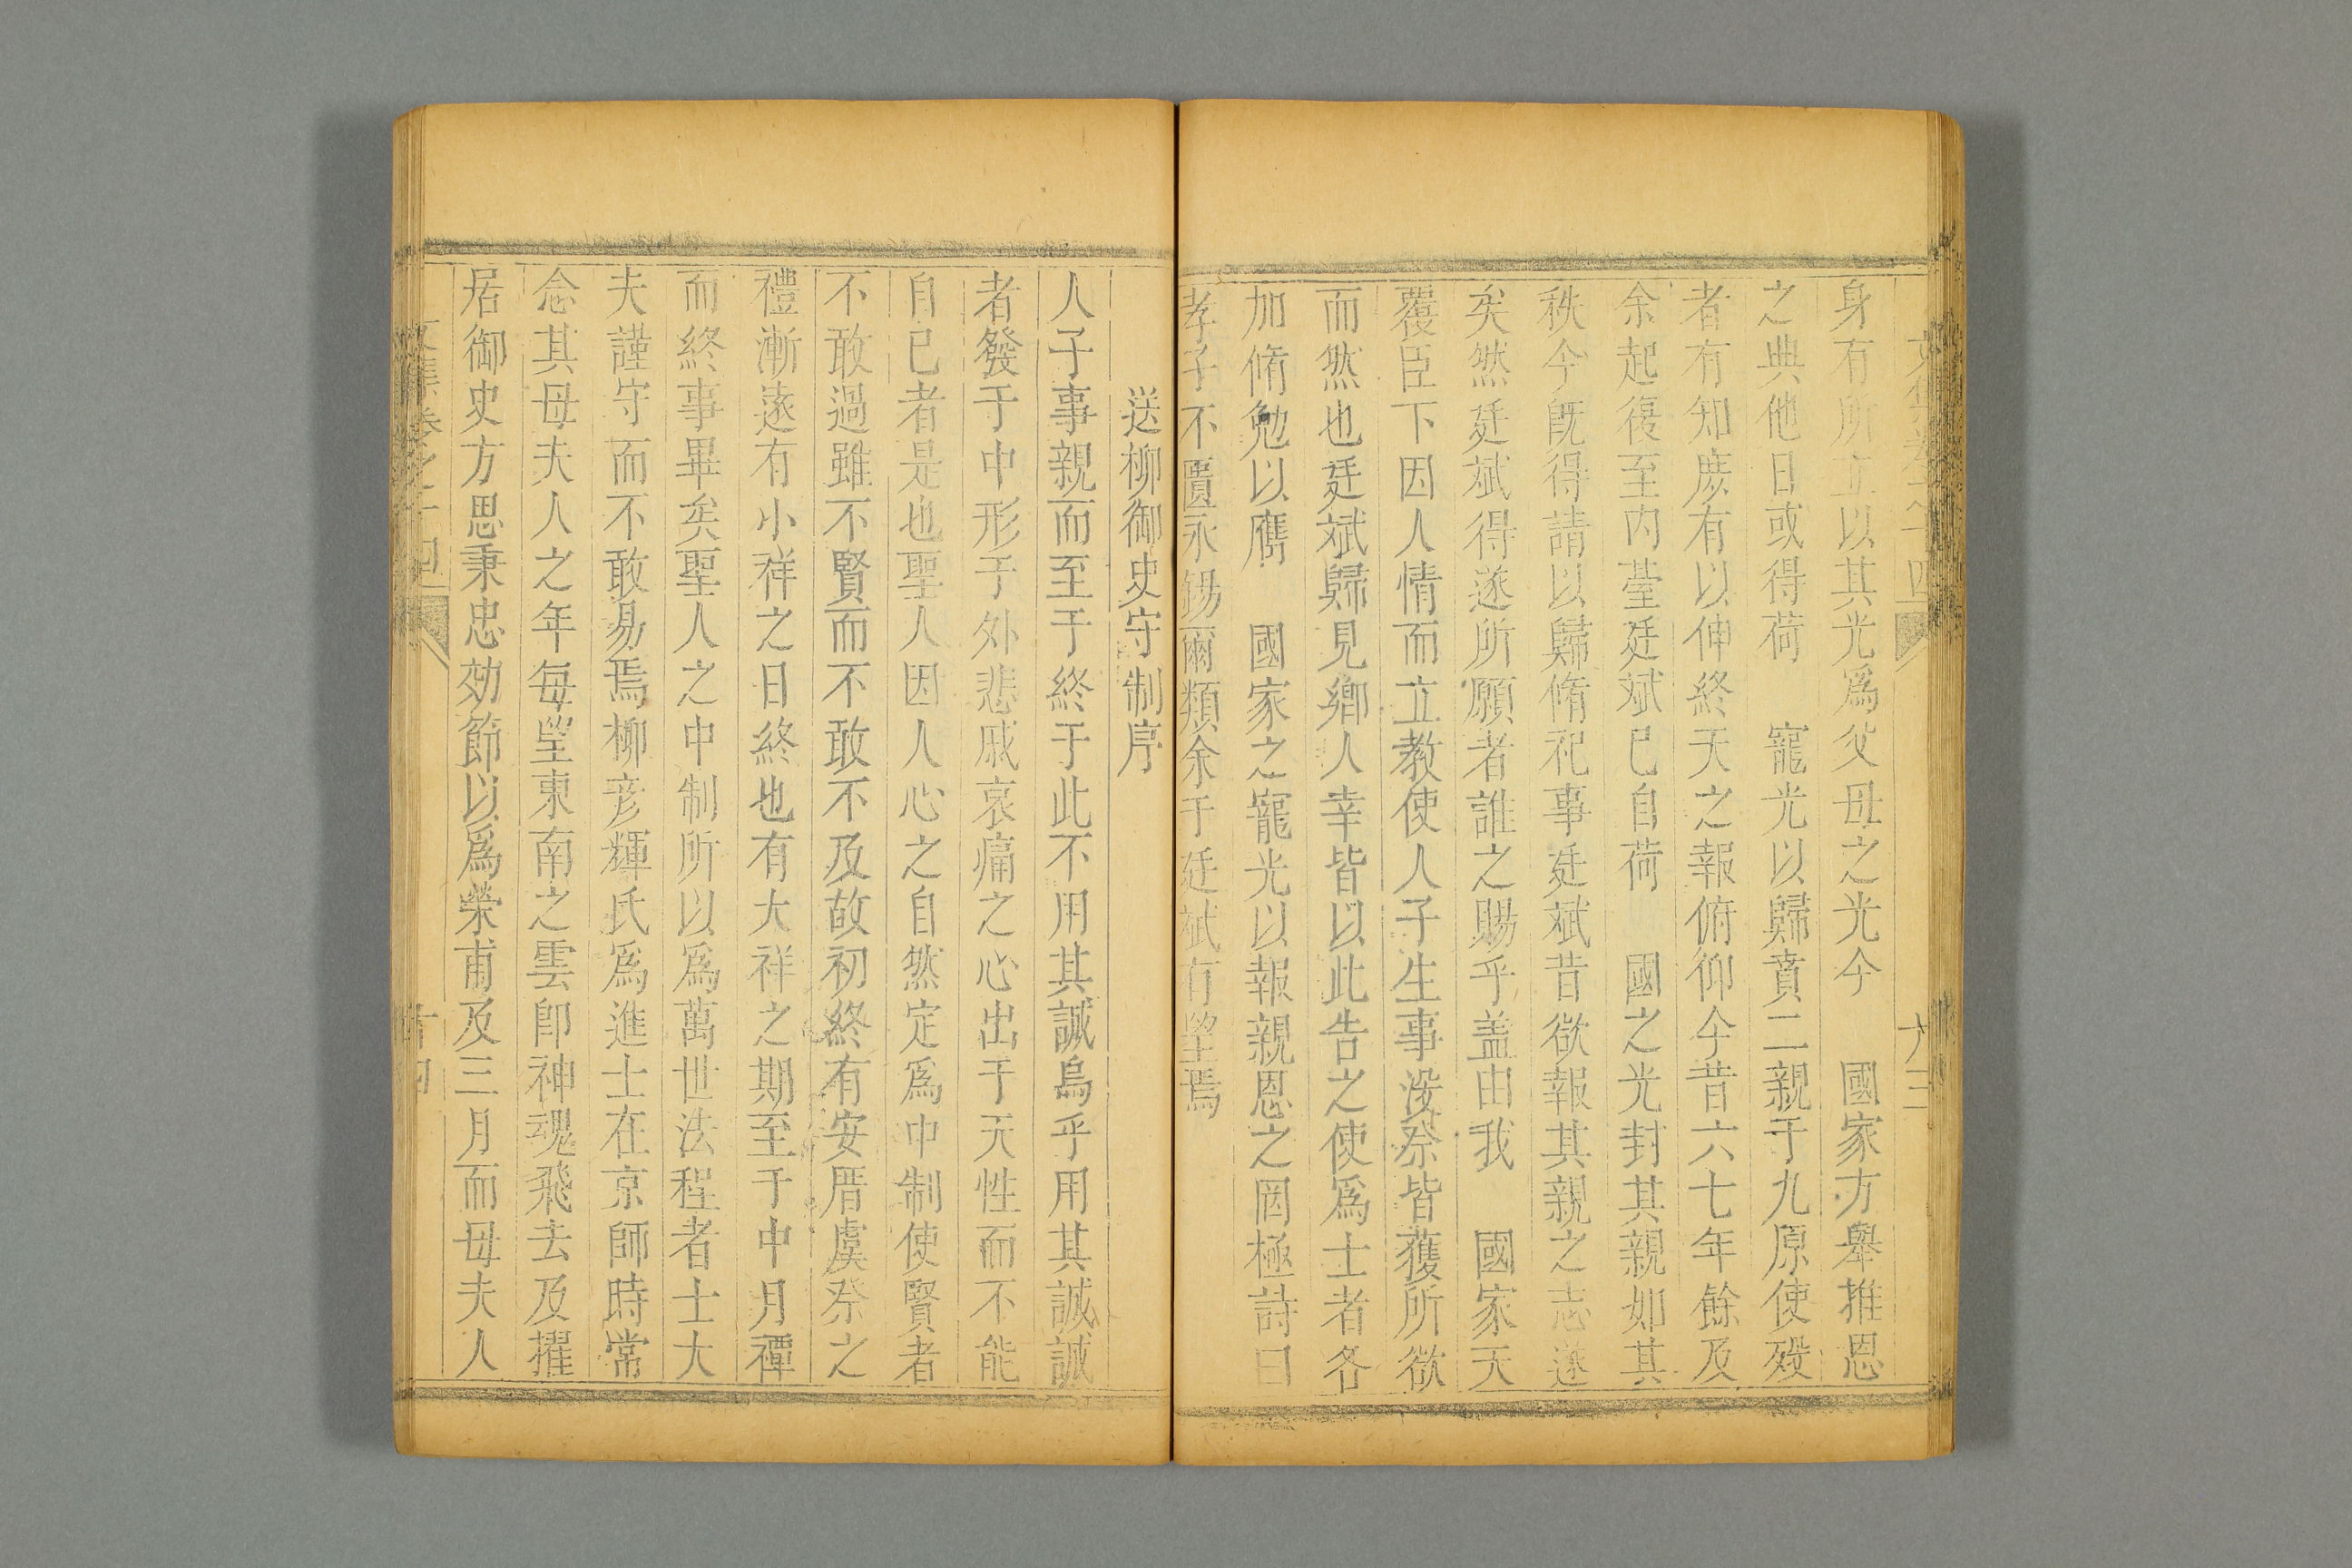 身有所立以其光爲父母之光今　國家方舉推恩
之典他日或得荷　寵光以歸賁二親于九原使殁
者有知庶有以伸終天之報俯仰今昔六七年餘及
余起復至内臺廷斌已自荷　國之光封其親如其
秩今旣得請以歸脩祀事廷斌昔欲報其親之志遂
矣然廷斌得遂所願者誰之賜乎盖由我　國家天
覆臣下因人情而立教使人子生事没祭皆獲所欲
而然也廷斌歸見鄉人幸皆以此告之使爲士者各
加脩勉以膺　國家之寵光以報親恩之罔極詩曰
孝子不匱永錫爾類余于廷斌有望焉
送柳御史守制序
人子事親而至于終于此不用其誠烏乎用其誠誠
者發于中形于外悲戚哀痛之心出于天性而不能
自已者是也聖人因人心之自然定爲中制使賢者
不敢過雖不賢而不敢不及故初終有安厝虞祭之
禮漸遠有小祥之日終也有大祥之期至于中月禫
而終事畢矣聖人之中制所以爲萬世法程者士大
夫謹守而不敢易焉柳彦輝氏爲進士在京師時常
念其母夫人之年每望東南之雲卽神魂飛去及擢
居御史方思秉忠効節以爲榮甫及三月而母夫人
文集卷之十四
十四